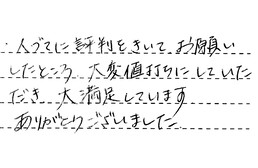 ・人づてに評判をきいて、お願い
したところ 大変値打ちにしていた
だき 大満足しています
ありがとうございました